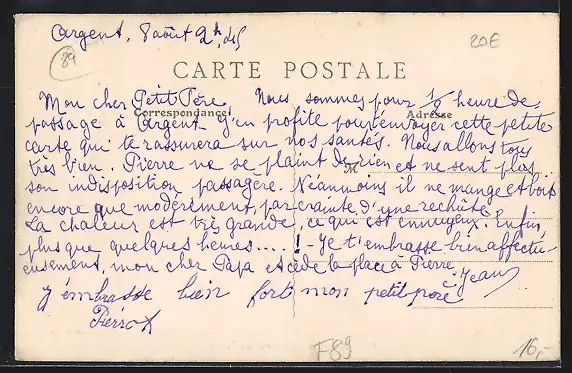 Argent, 8 août 2h,45
89
20E
CARTE POSTALE
Correspondance
Adresse
Mon cher Petit Père, Nous sommes pour 1/2 heure de
passage à Argent. J'en profite pour t'envoyer cette petite
carte qui te rassurera sur nos santés. Nous allons tous
très bien. Pierre ne se plaint de rien et ne sent plus
M
son indisposition passagère. Néanmoins il ne mange et boit
encore que modérément, par crainte d'une rechute.
La chaleur est très grande, ce qui est ennuyeux. Enfin,
plus que quelques heures....! - Je t'embrasse bien affectu-
eusement, mon cher Papa et cède la place à Pierre.
Jean
J'embrasse bien fort mon petit père
Pierrot
F89
16,-